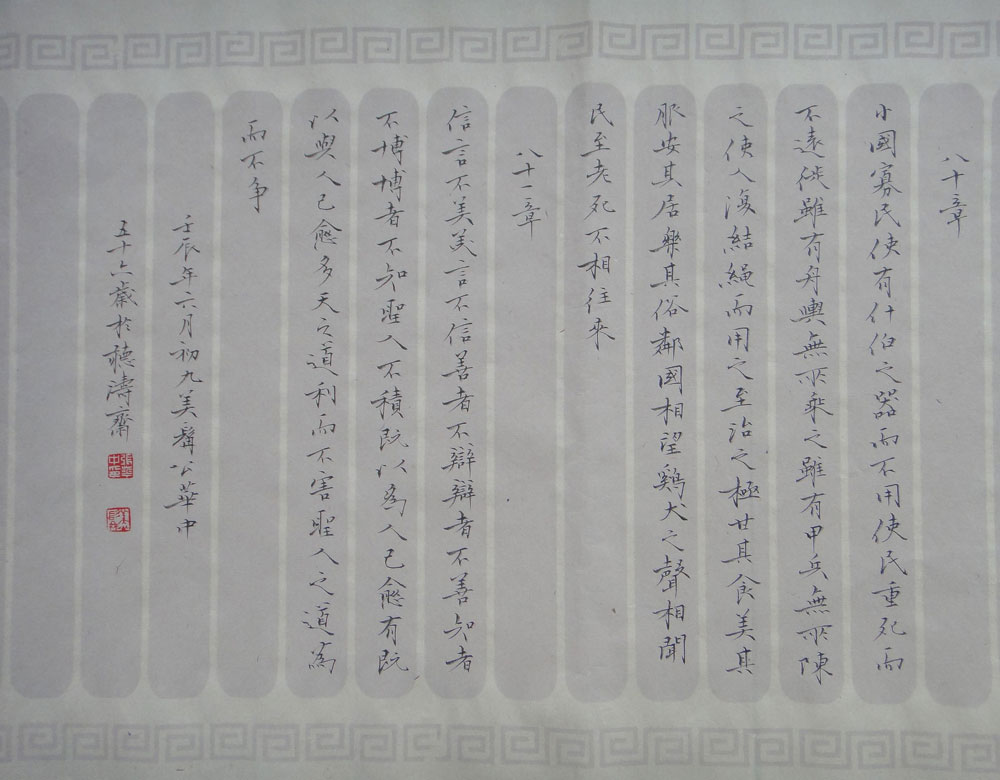 八十章
小國寡民使有什伯之器而不用使民重死而
不遠徙雖有舟輿無所乘之雖有甲兵無所陳
之使人復結繩而用之至治之極甘其食美其
服安其居樂其俗鄰國相望鷄犬之聲相聞
民至老死不相往來
八十一章
信言不美美言不信善者不辯辯者不善知者
不博博者不知聖人不積既以為人己愈有既
以與人己愈多天之道利而不害聖人之道為
而不争
壬辰年六月初九美髯公華中
五十六歲於穗濤齋